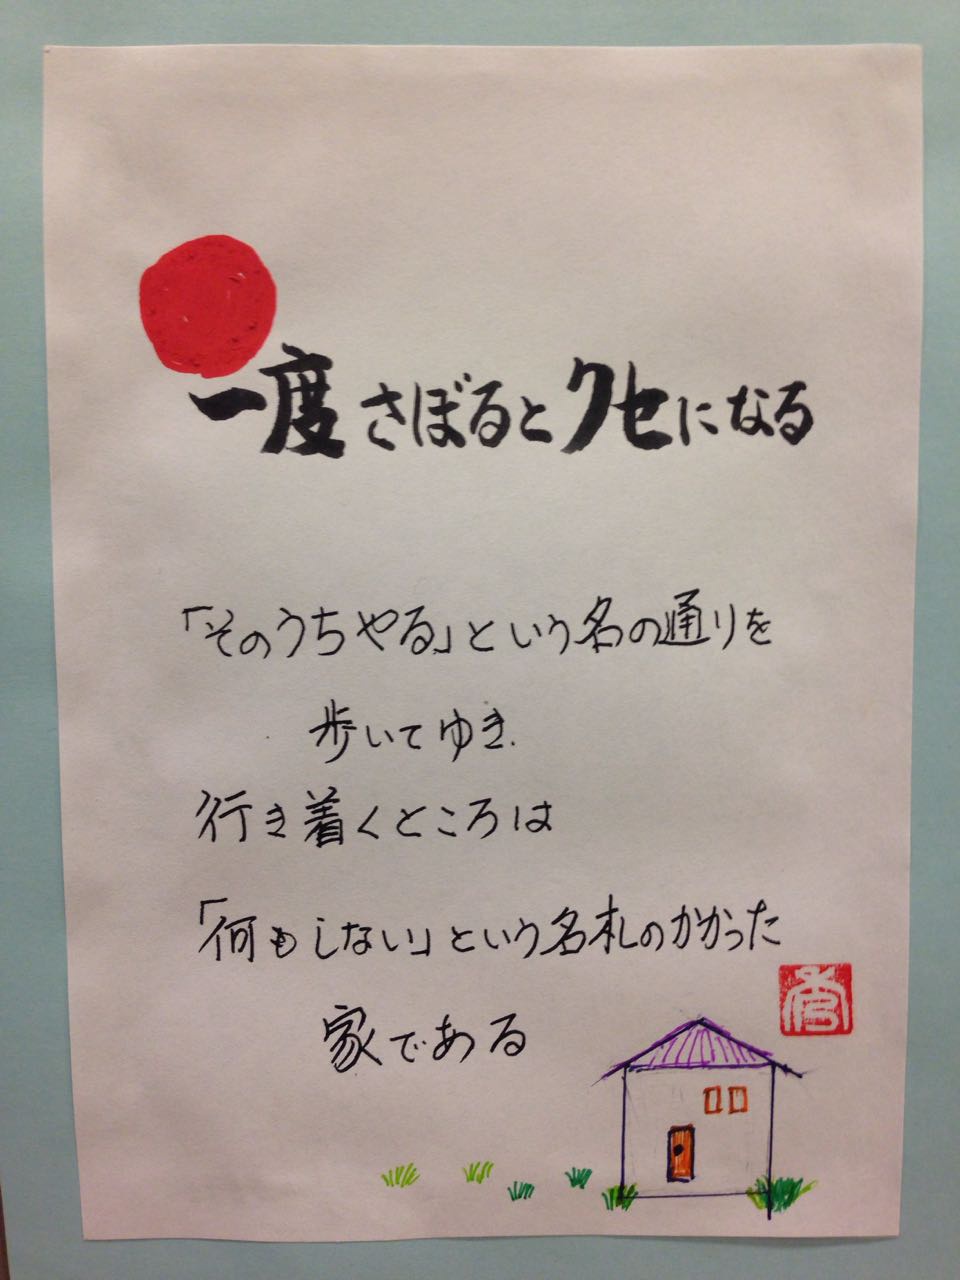 一度さぼるとクセになる
「そのうちやる」という名の通りを
歩いてゆき
行き着くところは
「何もしない」という名札のかかった
家である